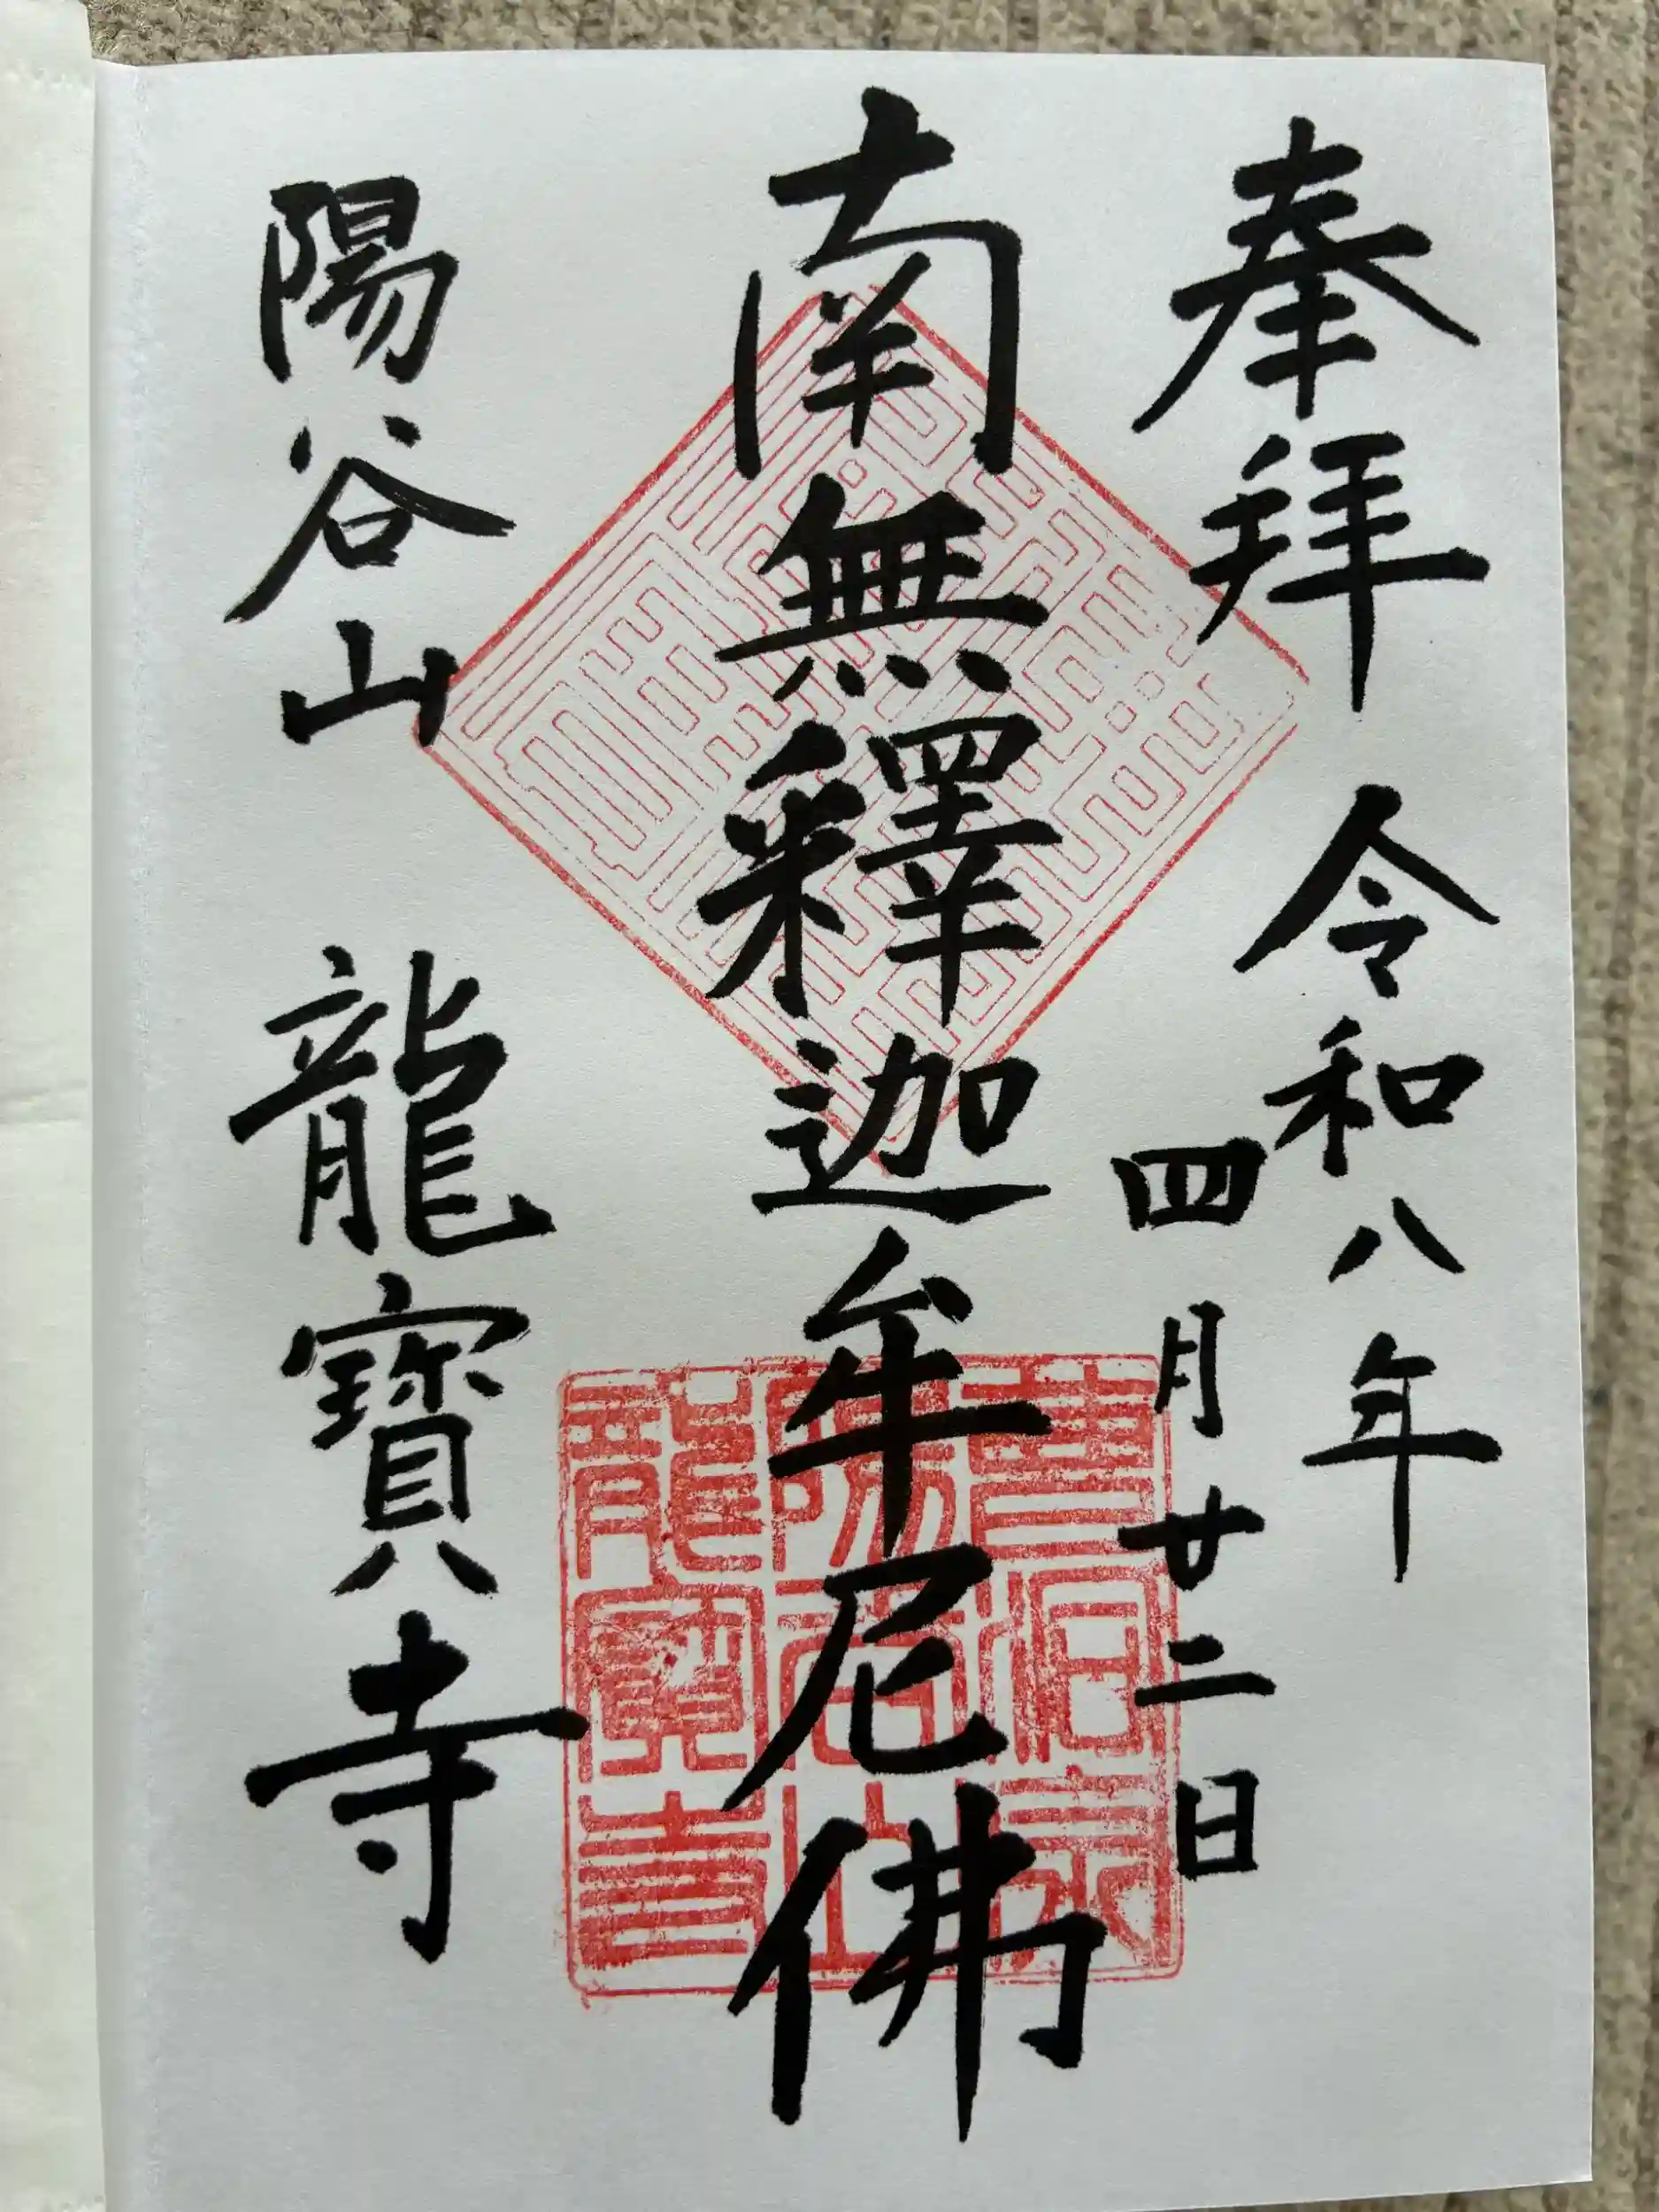 奉拜 令和八年
四月廿二日
南無釋迦牟尼佛
陽谷山 龍寶寺
曹洞宗
陽谷山
龍寶寺